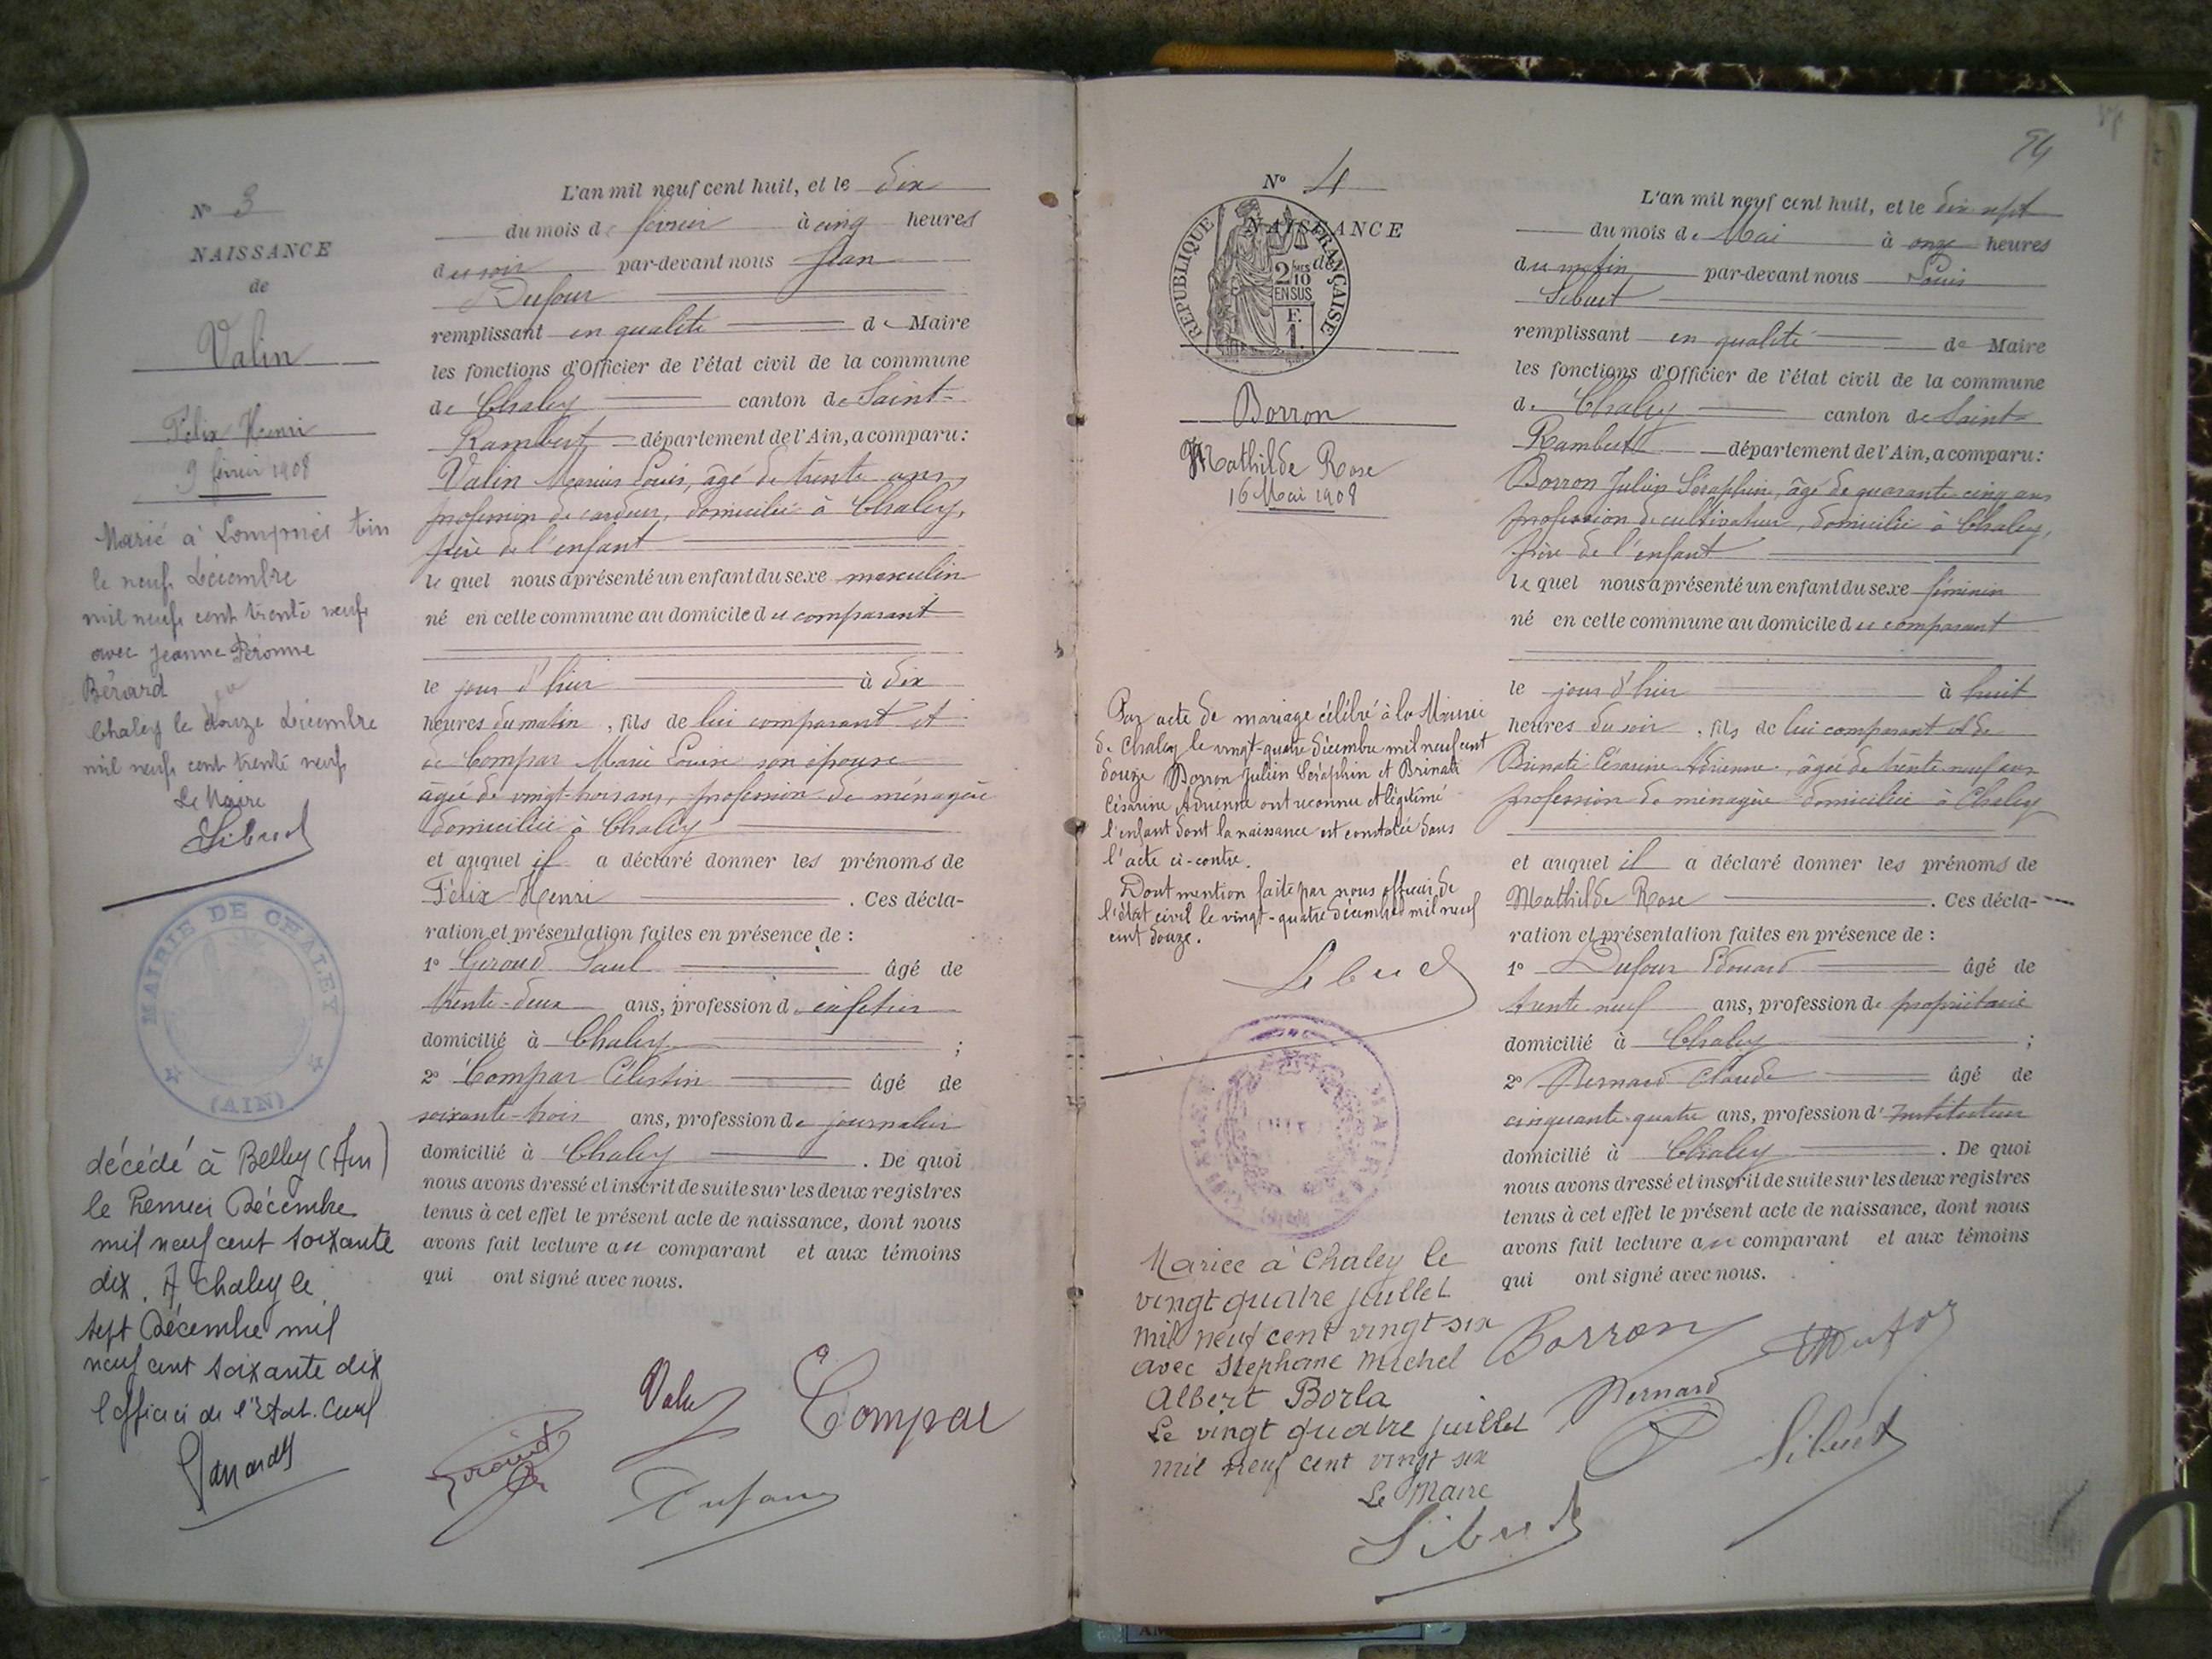 N° 3
NAISSANCE
de
Valin
Félix Henri
9 février 1908
Marié à Lompnies Ain
le neuf Décembre
mil neuf cent trente neuf
avec Jeanne Péronne
Bérard
Chaley le douze Décembre
mil neuf cent trente neuf
Le Maire
Sibuet
MAIRIE DE CHALEY
(AIN)
décédé à Belley (Ain)
le Premier Décembre
mil neuf cent soixante
dix. A Chaley le
sept Décembre mil
neuf cent soixante dix
l'officier de l'Etat. Civil
L'an mil neuf cent huit, et le dix
du mois de février à cinq heures
du soir par-devant nous Jean
Dufour
remplissant en qualité de Maire
les fonctions d'Officier de l'état civil de la commune
de Chaley canton de Saint-
Rambert département de l'Ain, a comparu :
Valin Marius Louis, âgé de trente ans,
profession de cardeur, domicilié à Chaley,
père de l'enfant
le quel nous a présenté un enfant du sexe masculin
né en cette commune au domicile du comparant
le jour d'hier à dix
heures du matin, fils de lui comparant et
de Compar Marie Louise son épouse
âgée de vingt-trois ans, profession de ménagère
domiciliée à Chaley
et auquel il a déclaré donner les prénoms de
Félix Henri . Ces décla-
ration et présentation faites en présence de :
1° Giroud Paul âgé de
trente-deux ans, profession d cafetier
domicilié à Chaley ;
2° Compar Célestin âgé de
soixante-trois ans, profession de journalier
domicilié à Chaley . De quoi
nous avons dressé et inscrit de suite sur les deux registres
tenus à cet effet le présent acte de naissance, dont nous
avons fait lecture au comparant et aux témoins
qui ont signé avec nous.
Valin Compar
Giroud
Dufour
54
N° 4
NAISSANCE
de
RÉPUBLIQUE FRANÇAISE
2 10
EN SUS
F.
1.
Borron
Mathilde Rose
16 Mai 1908
Par acte de mariage célébré à la Mairie
de Chaley le vingt-quatre décembre mil neuf cent
douze Borron Julien Séraphin et Brinati
Césarine Adrienne ont reconnu et légitimé
l'enfant dont la naissance est constatée dans
l'acte ci-contre.
Dont mention faite par nous officier de
l'état civil le vingt-quatre décembre mil neuf
cent douze.
Sibuet
MAIRIE
Mariée à Chaley le
vingt quatre juillet
mil neuf cent vingt six
avec Stephane Michel
Albert Borla
Le vingt quatre juillet
mil neuf cent vingt six
Le Maire
Sibuet
L'an mil neuf cent huit, et le dix sept
du mois de Mai à onze heures
du matin par-devant nous Louis
Sibuet
remplissant en qualité de Maire
les fonctions d'Officier de l'état civil de la commune
de Chaley canton de Saint-
Rambert département de l'Ain, a comparu :
Borron Julien Séraphin, âgé de quarante-cinq ans
profession de cultivateur, domicilié à Chaley,
père de l'enfant
le quel nous a présenté un enfant du sexe féminin
né en cette commune au domicile du comparant
le jour d'hier à huit
heures du soir , fils de lui comparant et de
Brinati Césarine Adrienne, âgée de trente-neuf ans
profession de ménagère domiciliée à Chaley
et auquel il a déclaré donner les prénoms de
Mathilde Rose . Ces décla-
ration et présentation faites en présence de :
1° Dufour Edouard âgé de
trente neuf ans, profession de propriétaire
domicilié à Chaley ;
2° Bernard Claude âgé de
cinquante-quatre ans, profession d'Instituteur
domicilié à Chaley . De quoi
nous avons dressé et inscrit de suite sur les deux registres
tenus à cet effet le présent acte de naissance, dont nous
avons fait lecture au comparant et aux témoins
qui ont signé avec nous.
Borron Dufour
Bernard
Sibuet